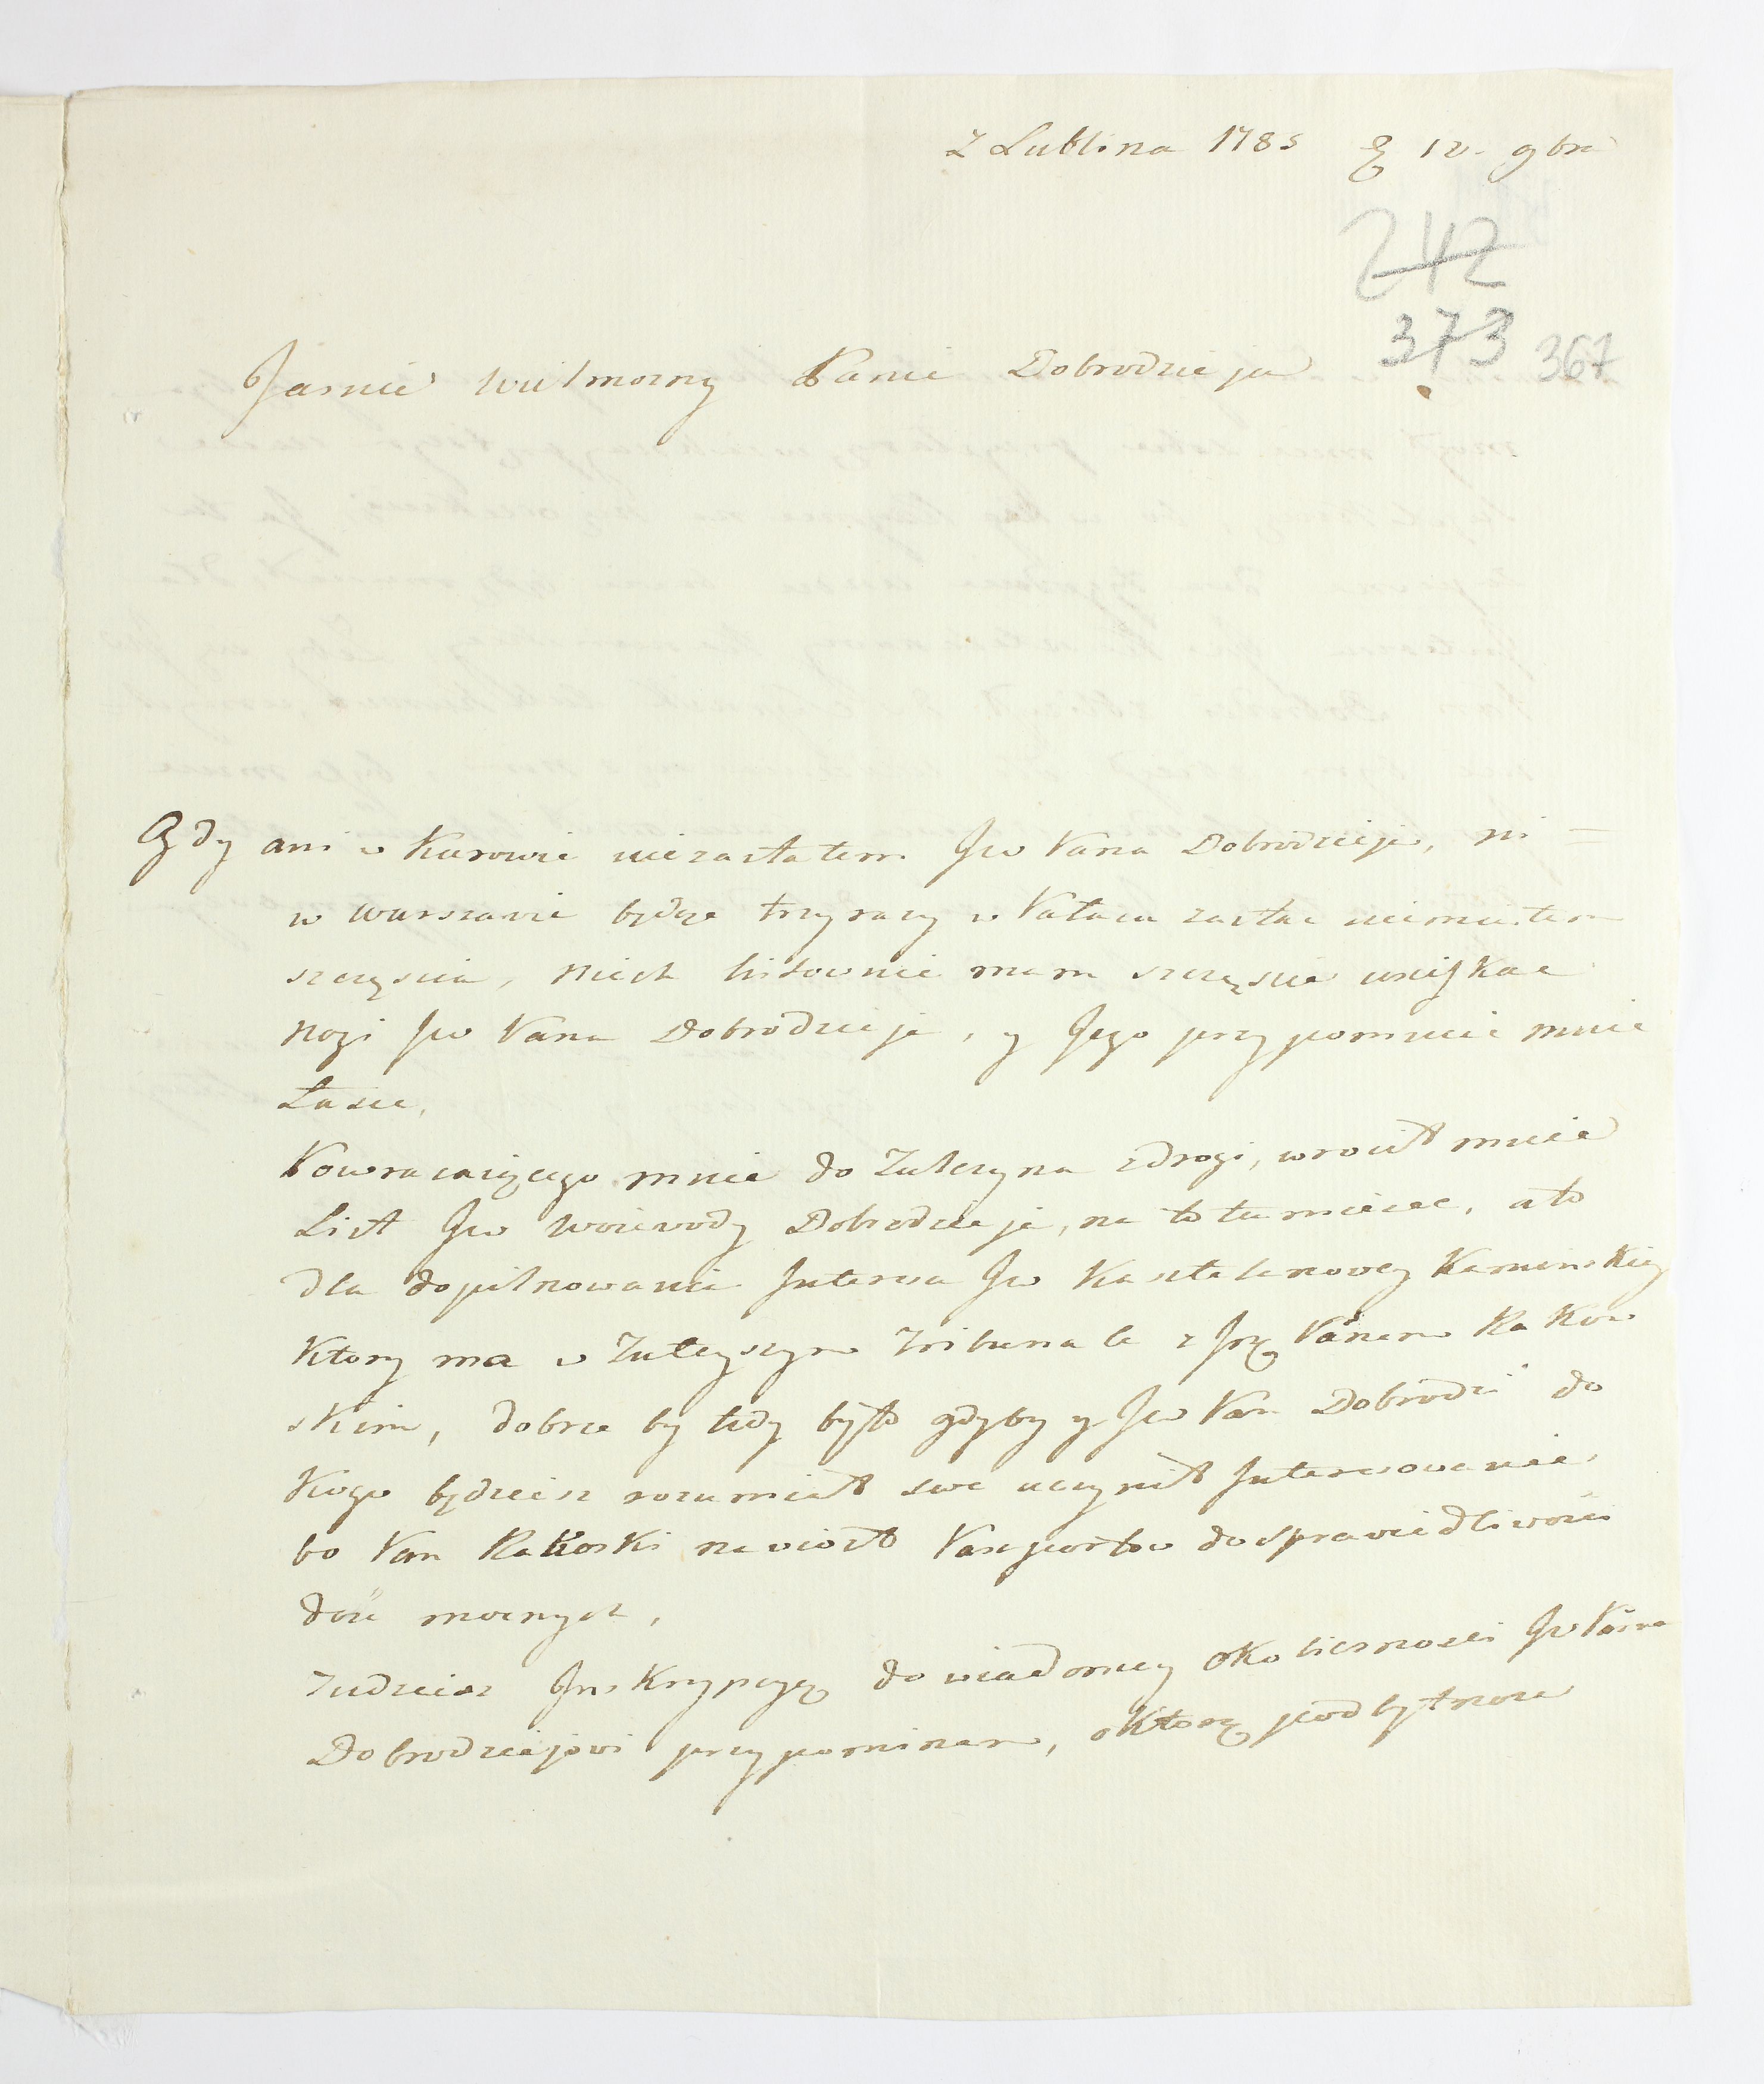 Z Lublina 1785 D 12. 9bra
242
373 367
Jasnie Wielmozny Panie Dobrodzieju
Gdy ani w Kurowie niezastałem Jw Pana Dobrodzieja, ni=
w Warszawie będąc trzy razy w Pałacu zastac niemiałem
szczęscia, niech listownie mam szczęscie usciskac
Nogi Jw Pana Dobrodzieja, y Jego przypomnieć mnie
Łasce,
Powracaiącego mnie do Tulczyna z drogi, wrocił mnie
List Jw Woiewody Dobrodzieja, na to tu mieisce, a to
dla dopilnowania Interesu Jw Kasztelanowey Kaminskiey
Ktory ma w Tuteyszym Tribunale z Jx Panem Rakow
skim, dobrze by tedy było gdyby y Jw Pan Dobrodzi do
Kogo będziesz rozumiał swe uczynił Interesowanie,
bo Pan Rakoski nawiozł Pasportow do sprawiedliwosci
dosć mocnych,
Tudziesz Inskrypcyę do wiadomey okolicznosci Jw Pana
Dobrodziejowi przypominam, o Ktorą pod bytnosc